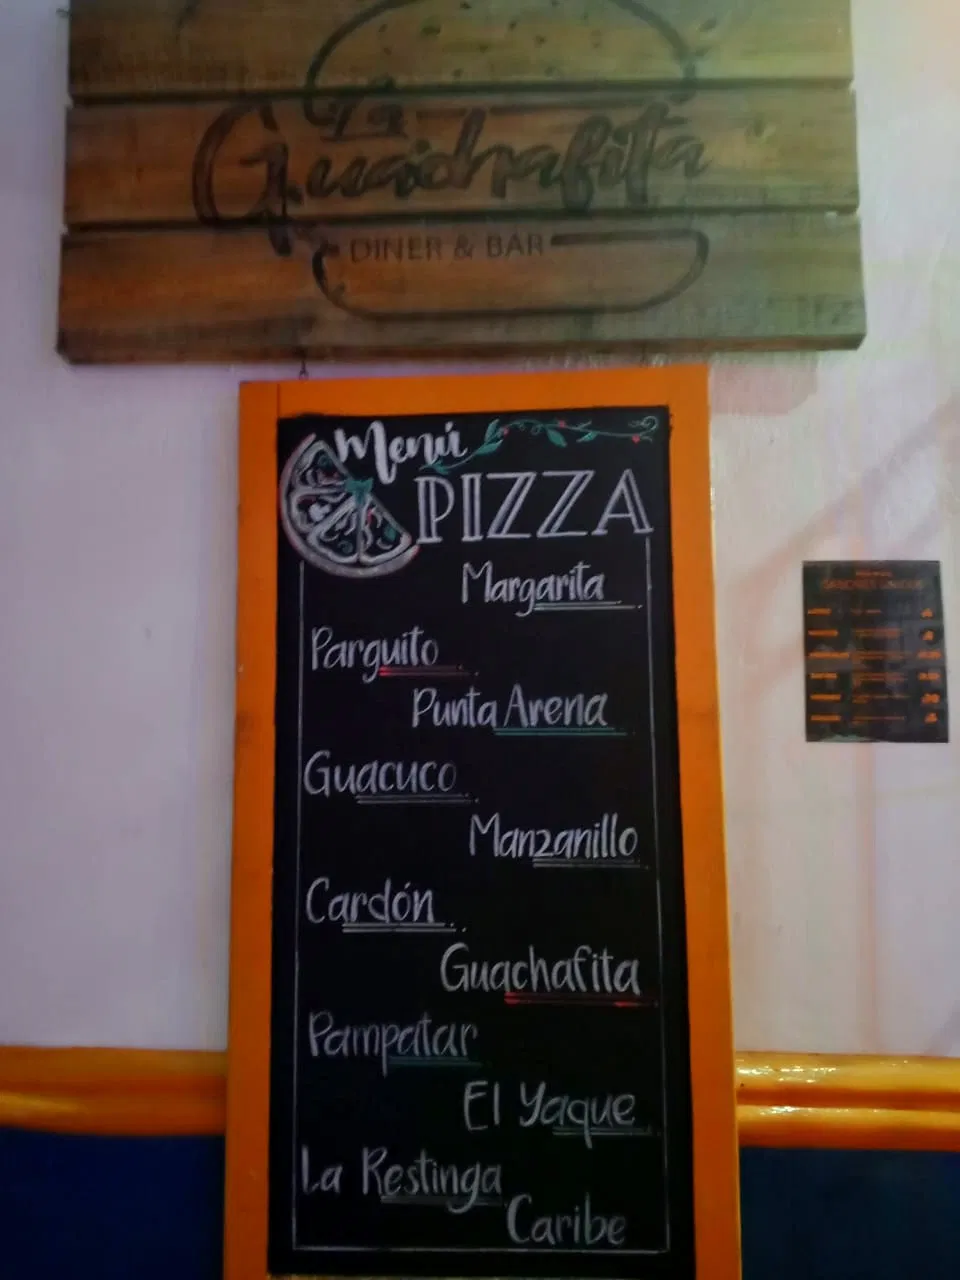 La
Guachafita
DINER & BAR
Menú
PIZZA
Margarita
Parguito
Punta Arena
Guacuco
Manzanillo
Cardón
Guachafita
Pampatar
El Yaque
La Restinga
Caribe